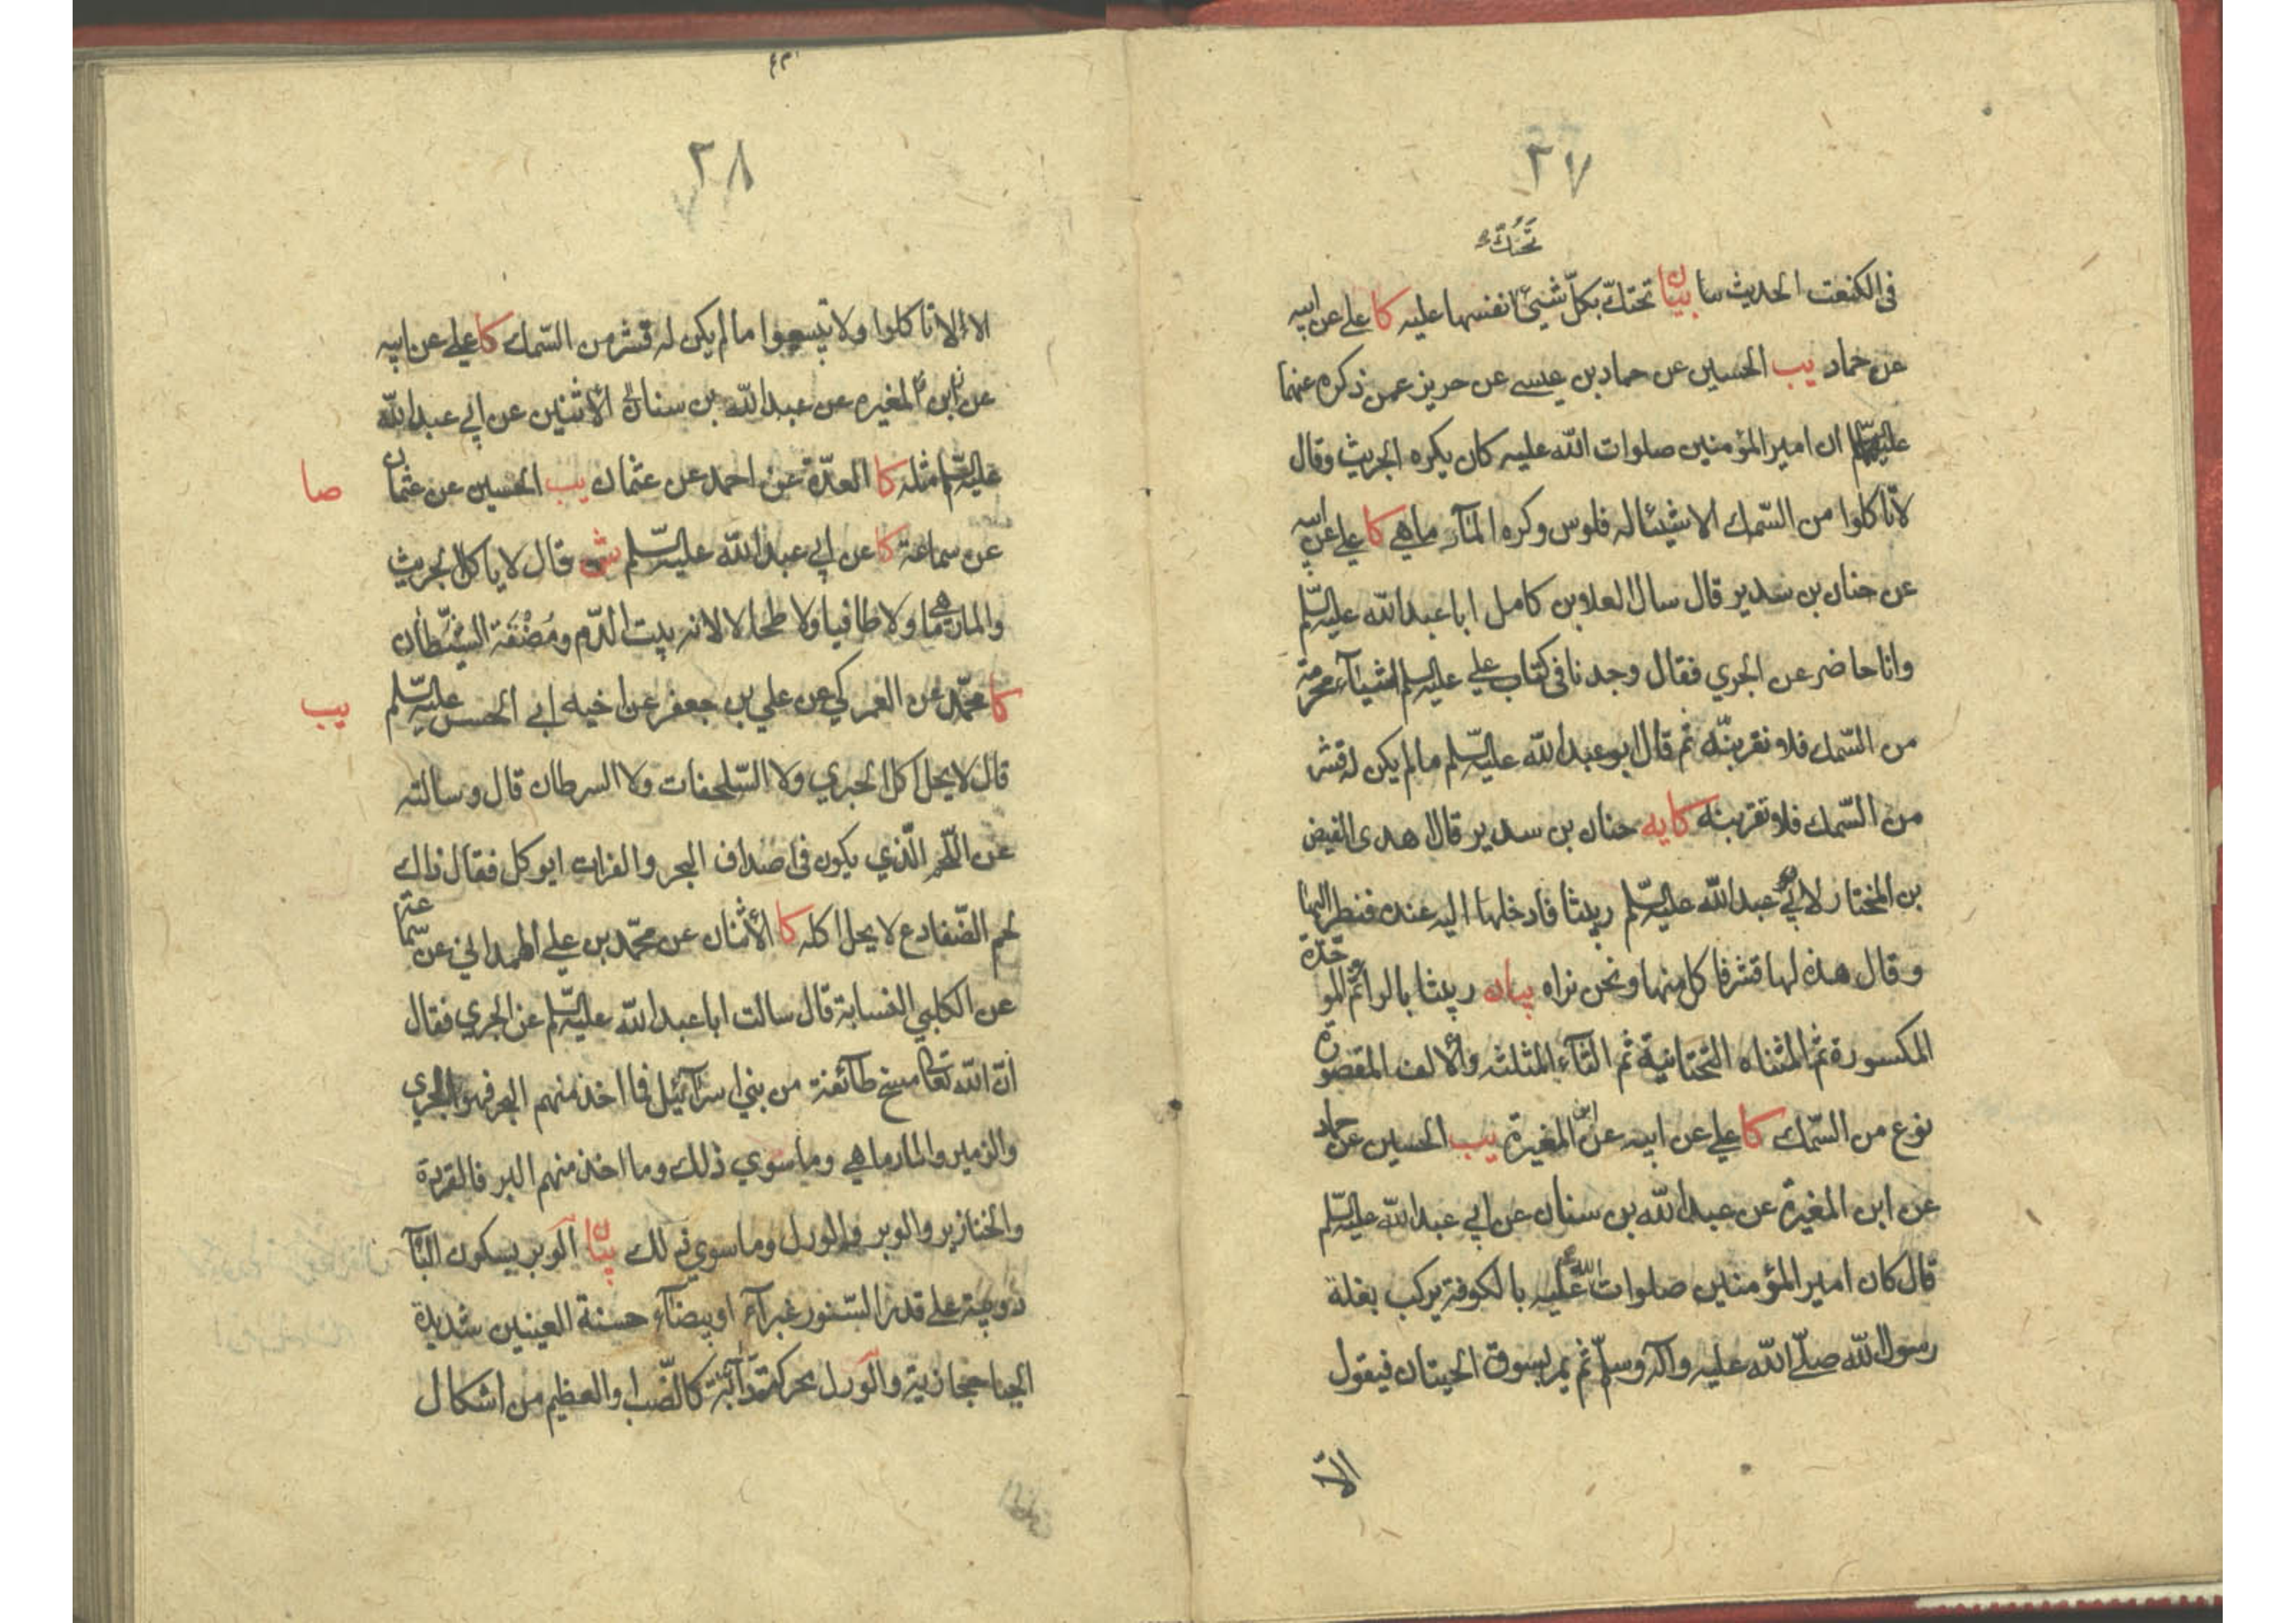 ٢٧
تحتك
في الكنعت الحديث سا بيان تحتك بكل شيئ انفسها عليه كا علي عن ابيه
عن حماد يب الحسين عن حماد بن عيسى عن حريز عمن ذكره عنهما
عليهما ان امير المؤمنين صلوات الله عليه كان يكره الجريث وقال
لا تاكلوا من السّمك الا شيئا له فلوس وكره المارماهي كا علي عن ابيه
عن حنان بن سدير قال سال العلا بن كامل ابا عبد الله عليه السّلم
وانا حاضر عن الجري فقال وجدنا في كتاب علي عليه السلم اشيآء محرمة
من السّمك فلا تقربنّه ثم قال ابو عبد الله عليه السّلم ما لم يكن له قشر
من السّمك فلا تقربنه كا يه حنان بن سدير قال اهدى الفيض
بن المختار لابي عبد الله عليه السّلم ربيثا فادخلها اليه عنده فنظر اليها
وقال هذه لها قشر فاكل منها ونحن نراه بيان ربيثا بالرا ثم الموحّدة
المكسورة ثم المثناه التحتانية ثم الثآء المثلثه والالف المقصورة
نوع من السّمك كا علي عن ابيه عن ابن المغيرة يب الحسين عن حماد
عن ابن المغيرة عن عبد الله بن سنان عن ابي عبد الله عليه السّلم
قال كان امير المؤمنين صلوات الله عليه بالكوفة يركب بغلة
رسول الله صلّى الله عليه واله وسلم ثم يمر بسوق الحيتان فيقول
الا
٢٨
الا لا تاكلوا ولا تبيعوا ما لم يكن له قشر من السّمك كا علي عن ابيه
عن ابن المغيره عن عبد الله بن سنان الاثنين عن ابي عبد الله
عليه السّلم مثله كا العدّة عن احمد عن عثمان يب الحسين عن عثمان
صا
عن سماعة كا عن ابي عبد الله عليه السّلم ش قال لا ياكل الجريث
والمارماهي ولا طافيا ولا طحالا لانه بيت الدّم ومُضْغَة الشيطان
كا محمّد عن العمركي عن علي بن جعفر عن اخيه ابي الحسن عليه السّلم
يب
قال لا يحل اكل الجري ولا السّلحفات ولا السرطان قال وسالته
عن اللّحم الّذي يكون في اصداف البحر والفرات ايوكل فقال ذاك
لحم الضّفادع لا يحل اكله كا الأثنان عن محمّد بن علي الهمداني عن سماعة
عن الكلبي النسابة قال سالت ابا عبد الله عليه السّلم عن الجري فقال
ان الله تعالى مسخ طآئفة من بني اسرآئيل فما اخذ منهم البحر فهو الجري
والزمير والمارماهي وما سوي ذلك وما اخذ منهم البر فالقردة
والخنازير والوبر والورل وما سوي ذلك بيان الوبر بسكون البآ
دويبة على قدر السّنور غبرآء او بيضآء حسنة العينين شديدة
الحيا حجازية والورل محركة دآبّة كالضّب او العظيم من اشكال